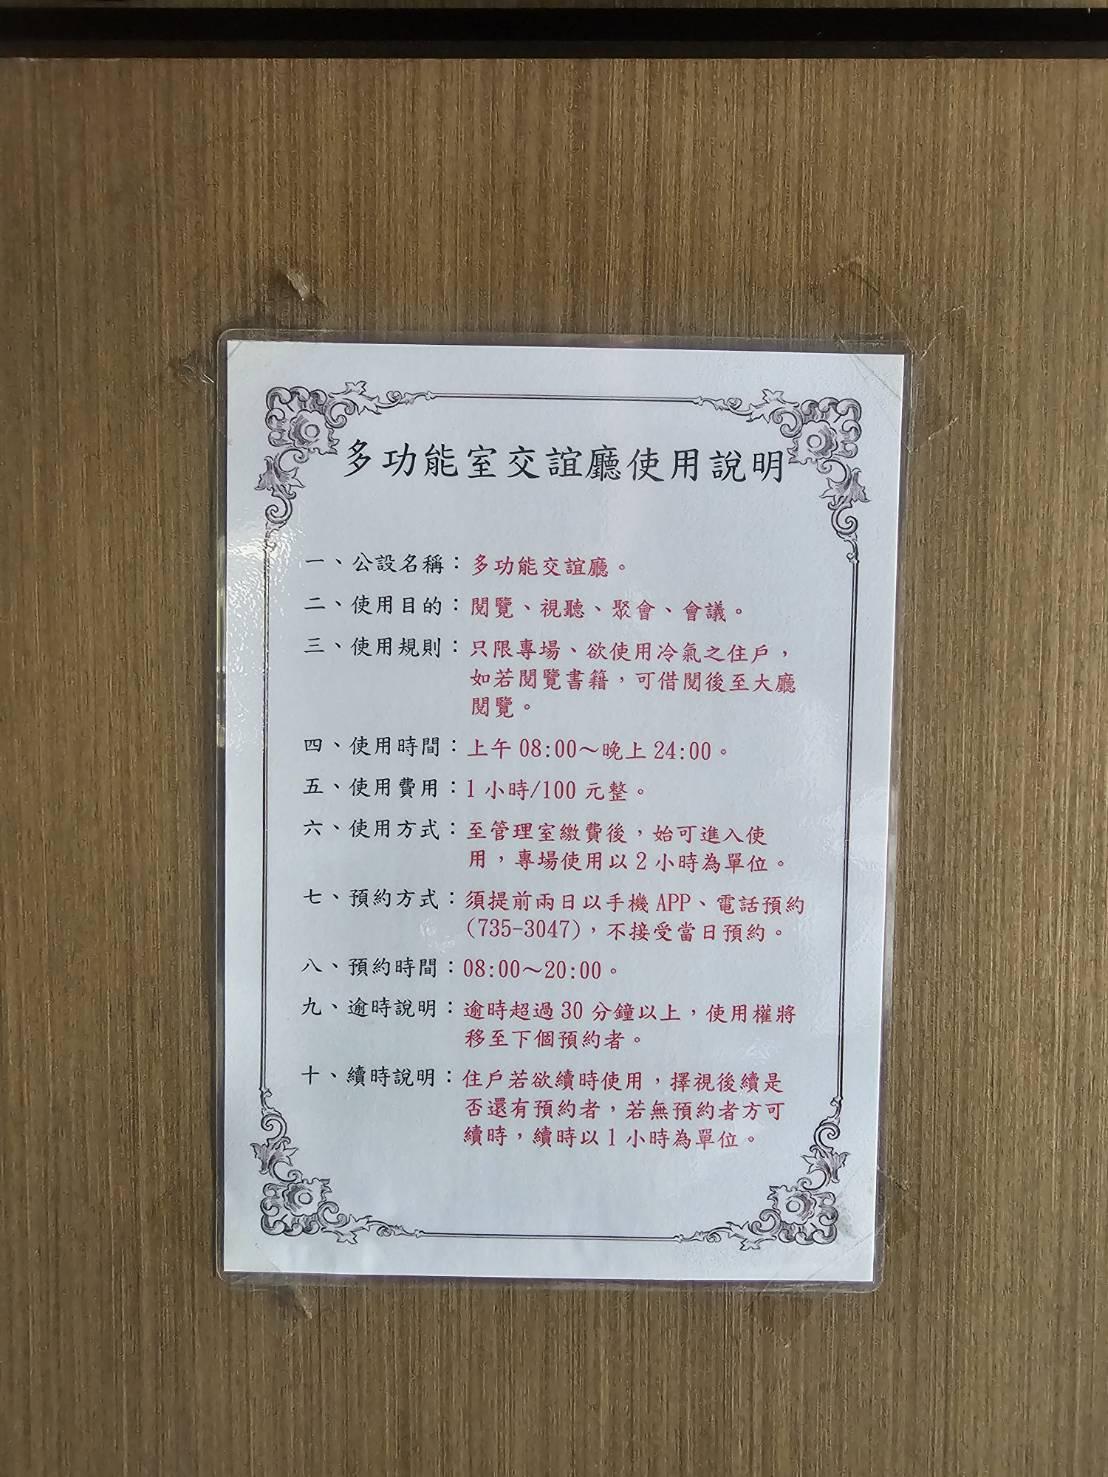 多功能室交誼廳使用說明
一、公設名稱：多功能交誼廳。
二、使用目的：閱覽、視聽、聚會、會議。
三、使用規則：只限專場、欲使用冷氣之住戶，
如若閱覽書籍，可借閱後至大廳
閱覽。
四、使用時間：上午 08:00～晚上 24:00。
五、使用費用：1 小時/100 元整。
六、使用方式：至管理室繳費後，始可進入使
用，專場使用以 2 小時為單位。
七、預約方式：須提前兩日以手機 APP、電話預約
(735-3047)，不接受當日預約。
八、預約時間：08:00～20:00。
九、逾時說明：逾時超過 30 分鐘以上，使用權將
移至下個預約者。
十、續時說明：住戶若欲續時使用，擇視後續是
否還有預約者，若無預約者方可
續時，續時以 1 小時為單位。